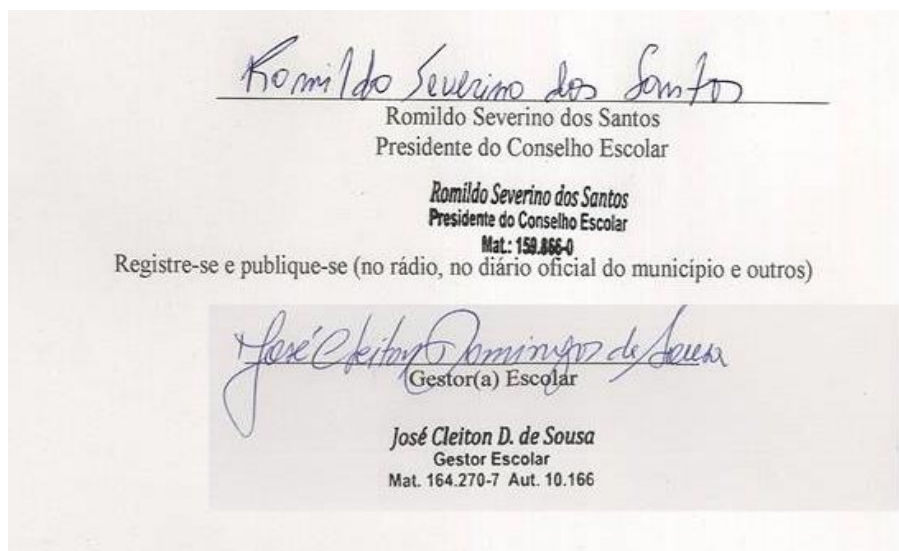 Romildo Severino dos Santos
Romildo Severino dos Santos
Presidente do Conselho Escolar
Romildo Severino dos Santos
Presidente do Conselho Escolar
Mat.: 159.866-0
Registre-se e publique-se (no rádio, no diário oficial do município e outros)
José Cleiton Domingos de Sousa
Gestor(a) Escolar
José Cleiton D. de Sousa
Gestor Escolar
Mat. 164.270-7 Aut. 10.166